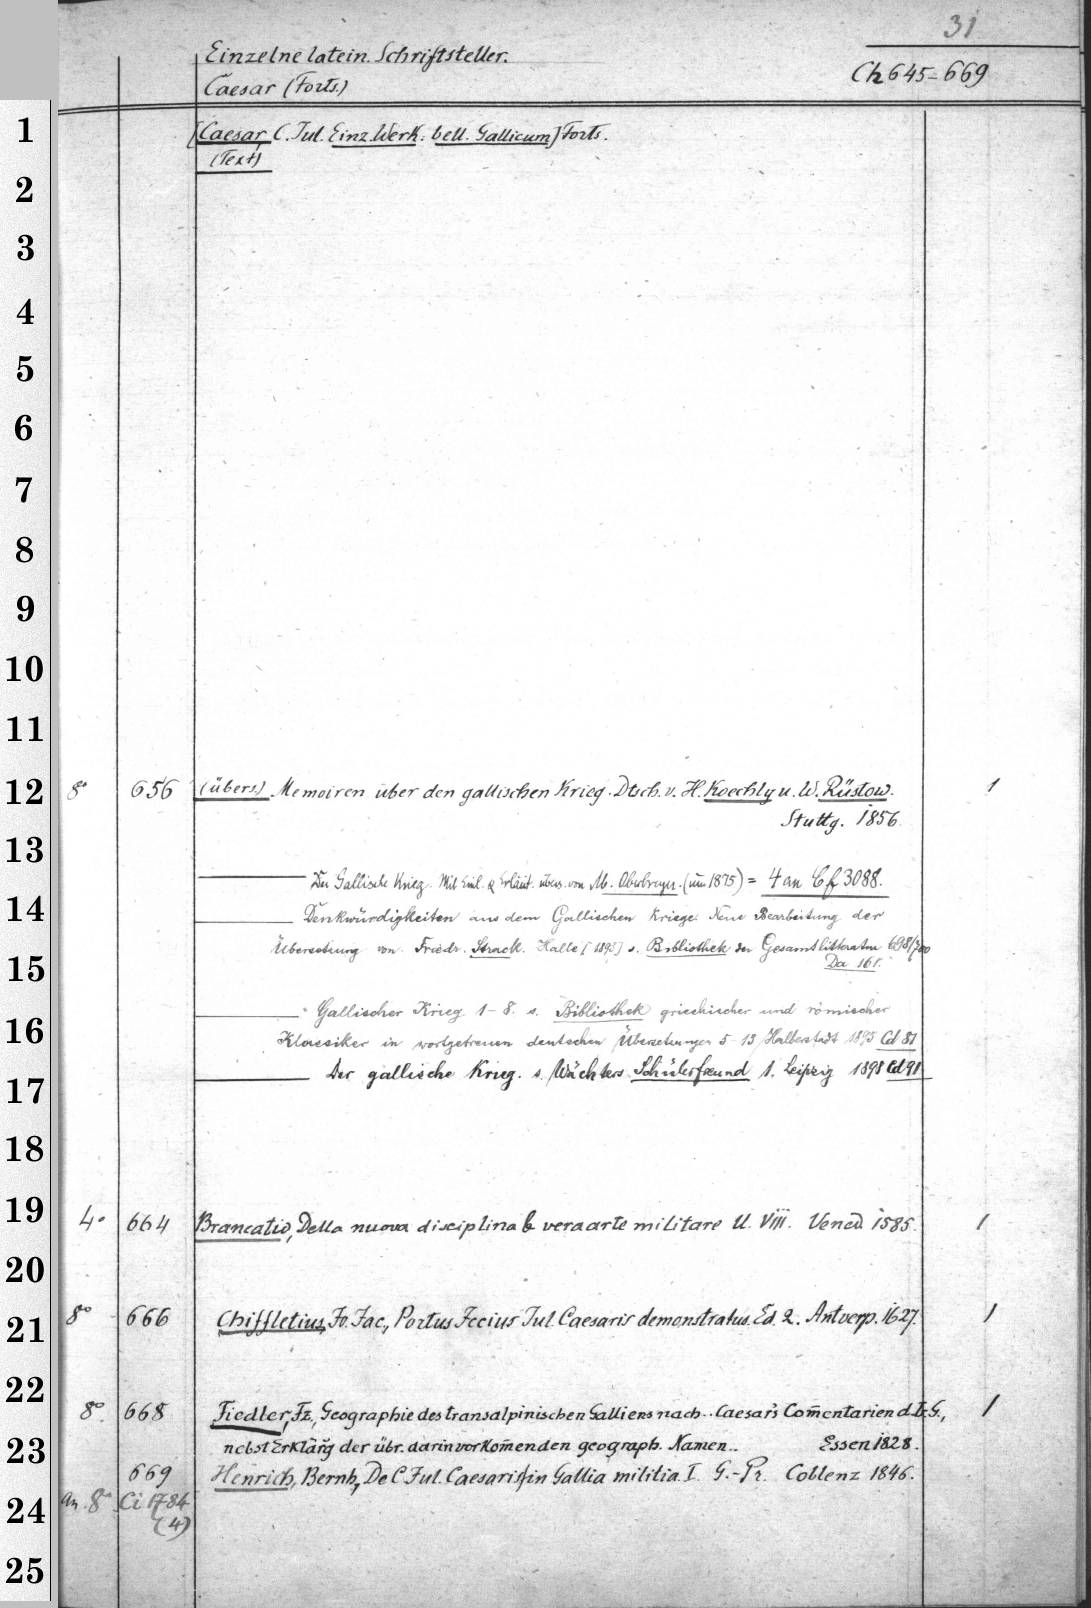 31
Einzelne latein. Schriftsteller.
Ch 645-669
Caesar (Forts.)
1
[Caesar, C. Jul. Einz. Werk.: bell. Gallicum] Forts.
(Text)
2
3
4
5
6
7
8
9
10
11
12 8° 656 (übers.) Memoiren über den gallischen Krieg. Dtsch. v. H. Koechly u. W. Rüstow. 1
Stuttg. 1856.
13
Der Gallische Krieg. Mit Einl. & Erläut. übers. von M. Oberbreyer. (um 1875) = 4 an Cf 3088.
14 Denkwürdigkeiten aus dem Gallischen Kriege. Neue Bearbeitung der
Übersetzung von Friedr. Strack. Halle [1895] s. Bibliothek der Gesamtlitteratur 698/700
15 Da 161.
Gallischer Krieg 1-8. s. Bibliothek griechischer und römischer
16 Klassiker in wortgetreuen deutschen Übersetzungen 5-13 Halberstadt 1895 Cd 81
17 Der gallische Krieg. s. Wächters Schülerfreund 1. Leipzig 1898 Cd 91
18
19 4° 664 Brancatio, Della nuova disciplina & vera arte militare ll. VIII. Vened. 1585. 1
20
21 8° 666 Chiffletius, Jo. Jac., Portus Iccius Jul. Caesaris demonstratus. Ed. 2. Antverp. 1627. 1
22 8° 668 Fiedler, Fz., Geographie des transalpinischen Galliens nach.. Caesar's Com̄entarien d. b. G., 1
23 nebst Erklärg der übr. darin vorkom̄enden geograph. Namen.. Essen 1828.
669 Henrich, Bernh., De C. Jul. Caesaris in Gallia militia. I. G.-Pr. Coblenz 1846.
24 an. 8° Ci 1784
(4)
25